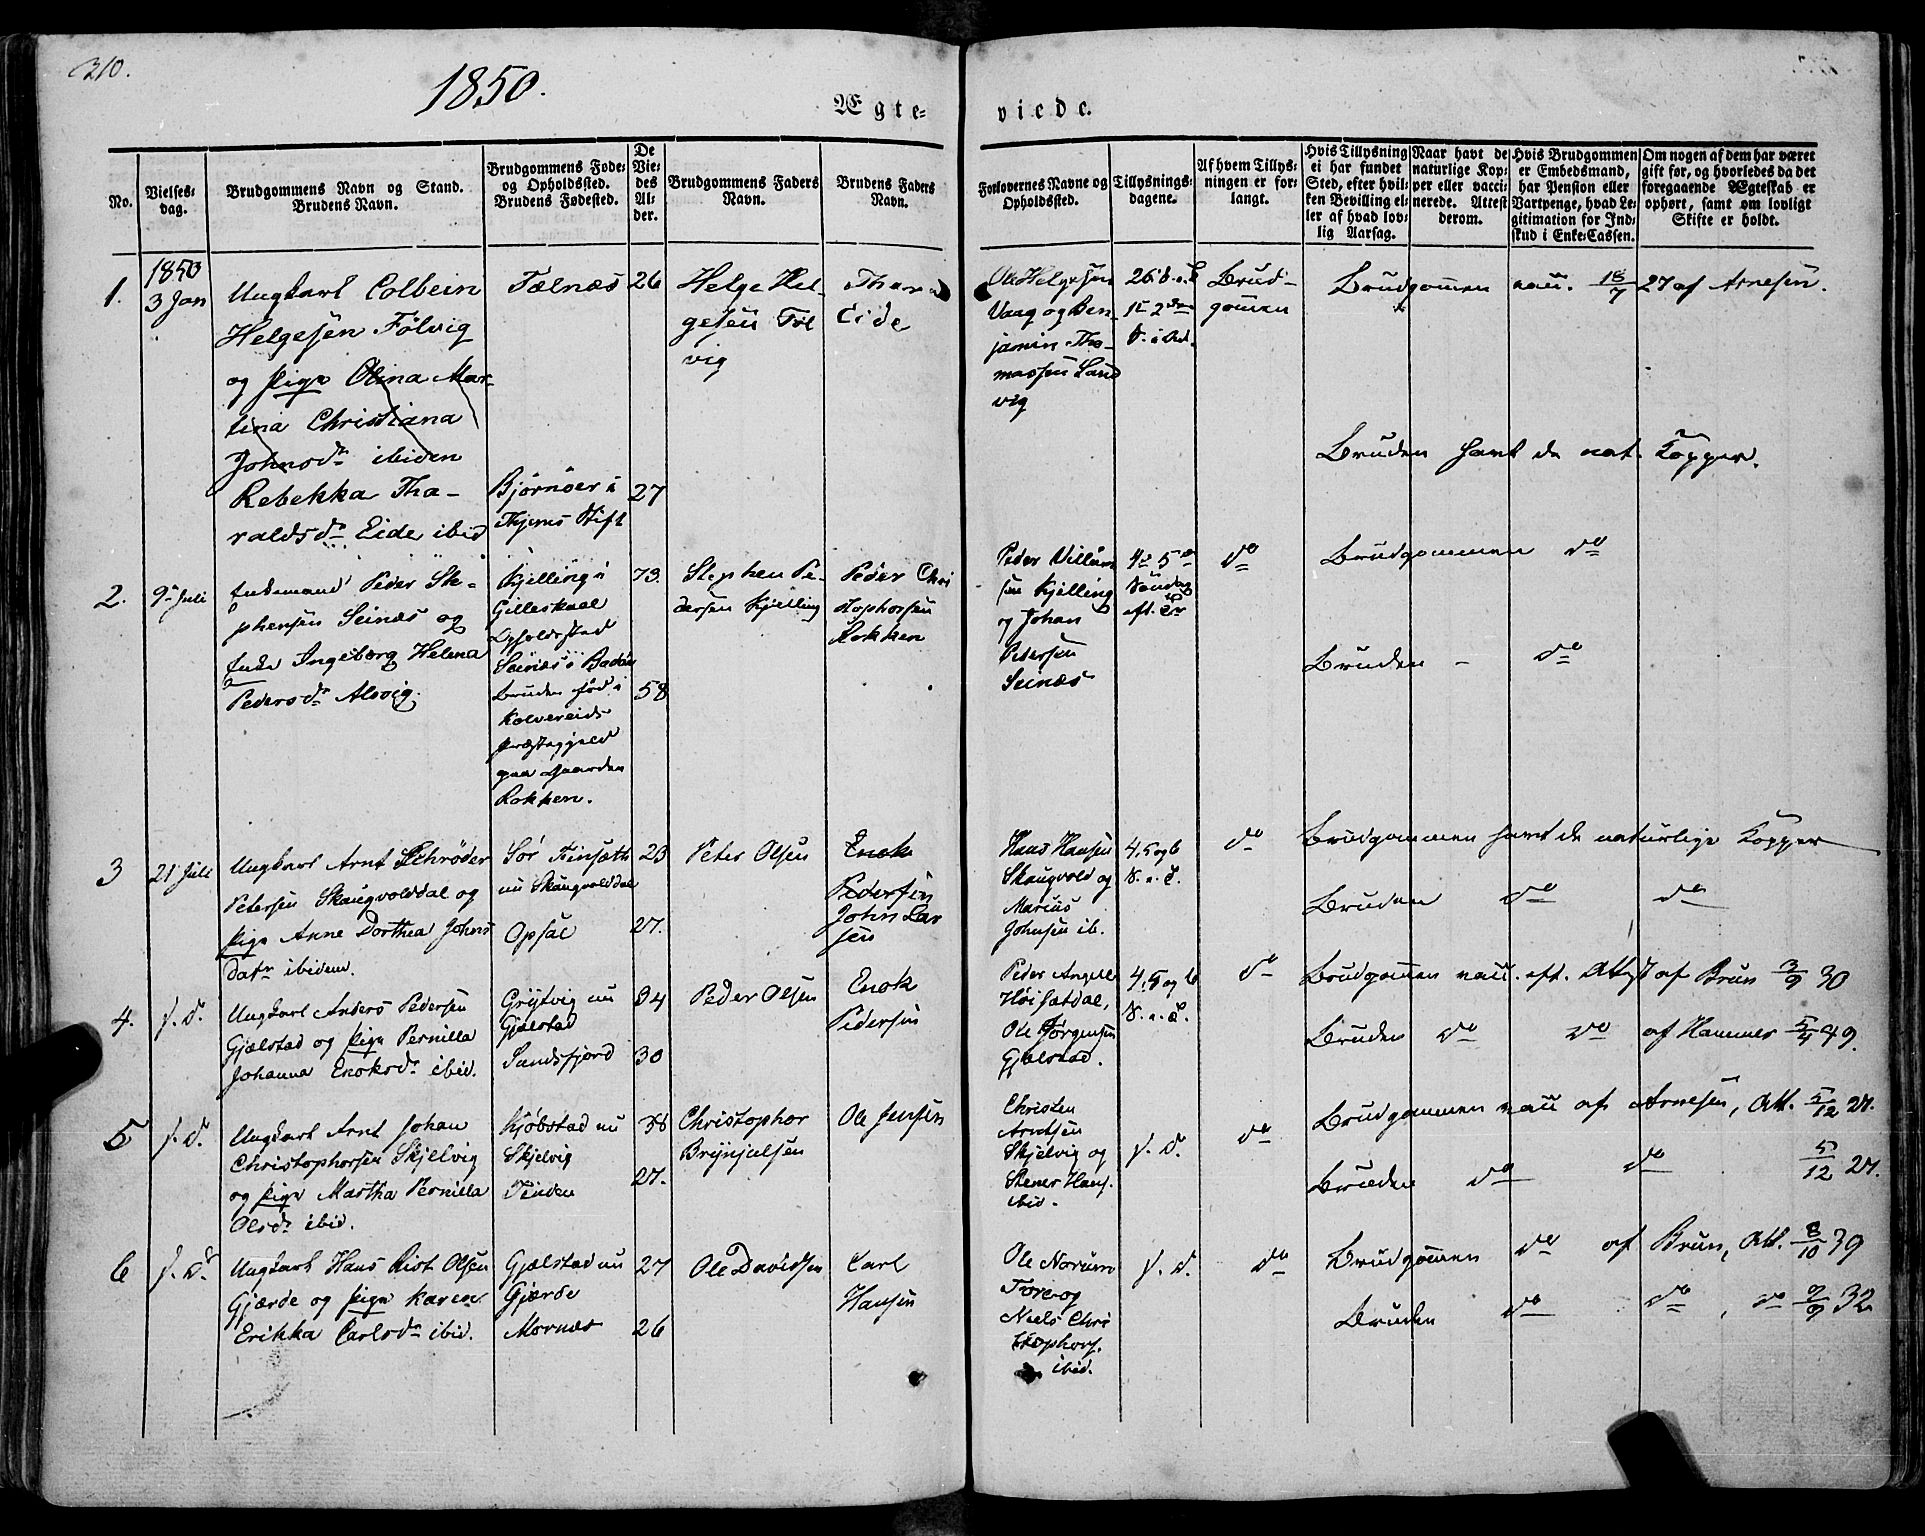 310.
1850.
Ægte-
viede.
No.
Vielses-
dag.
Brudgommens Navn og Stand.
Brudens Navn.
Brudgommens Føde-
og Opholdssted.
Brudens Fødested.
De
Vie-
des
Al-
der.
Brudgommens Faders
Navn.
Brudens Faders
Navn.
Forlovernes Navne og
Opholdssted.
Tillysnings-
dagene.
Af hvem Tillys-
ningen er for-
langt.
Hvis Tillysning
ei har fundet
Sted, efter hvil-
ken Bevilling el-
ler af hvad lov-
lig Aarsag.
Naar havt de
naturlige Kop-
per eller vacci-
nerede. Attest
derom.
Hvis Brudgommen
er Embedsmand,
har Pension eller
Vartpenge, hvad Le-
gitimation for Ind-
skud i Enke-Cassen.
Om nogen af dem har været
gift før, og hvorledes da det
foregaaende Ægteskab er
ophørt, samt om lovligt
Skifte er holdt.
1.
1850
3 Jan
Ungkarl Colbein
Helgesen Følvig
og Pige Olina Mar-
tina Christiana
Johnsdr ibiden
Rebekka Tha-
raldsdr Eide ibid
Tælnæs
Bjørnøer i
Thjems Stift
26
27
Helge Hel-
gesen Føl
vig
Thar
Eide
Ole Helgesen
Vaag og Ben-
jamin Tho-
massen Sand
vig
26 S. e. T.
1ste 2den
S. i Adv.
Brud-
gommen
Brudgommen vacc. 18/7 27 af Arnesen.
Bruden havt de nat. Kopper.
2.
9de Juli
Enkemand Peder Ste-
phensen Seinæs og
Enke Ingeborg Helena
Pedersdr Alsvig.
Kjelling i
Gilleskaal
Opholdssted
Seinæs i Bodø
Bruden fød i
Kolvereids
Præstegjeld
paa Gaarden
Rokken.
73.
58
Stephen Pe-
dersen Kjelling
Peder Chri
stophersen
Rokken
Peder Villum
sen Kjelling
og Johan
Pedersen
Seinæs
4de 5te
Søndag
eft. Tr
do
Brudgommen do
Bruden - do
3
21 Juli
Ungkarl Arnt Schrøder
Petersen Skaugvolddal og
Pige Anne Dorthea Johns
datr ibidem.
Sør Finsæth
nu Skaugvolddal
Opsal
23
27.
Peter Olsen
Enok
Pedersen
John Lar
sen
Hans Hansen
Skaugvold og
Marius
Johnsen ib.
4, 5 og 6
S. e. T.
do
Brudgommen havt de naturlige Kopper
Bruden do do
4.
s. d.
Ungkarl Anders Pedersen
Gjælstad og Pige Pernilla
Johanna Enoksdr ibid.
Grytvig nu
Gjælstad
Sundsfjord
34
30
Peder Olsen
Enok
Pedersen
Peder Angell
Høisætdal,
Ole Jørgensen
Gjælstad.
4, 5 og 6
S. e. T.
do
Brudgommen vacc. eft. Attest af Brun 3/9 30
Bruden do do af Hammer 5/4 49.
5
s. d.
Ungkarl Arnt Johan
Christophersen Skjelvig
og Pige Martha Pernilla
Olsdr ibid.
Kjøbstad nu
Skjelvig
Tinden
36
27.
Christopher
Brynjulsen
Ole Jensen
Christen
Arntsen
Skjelvig og
Stener Hans.
ibid.
s. d.
do
Brudgommen vacc af Arnesen, Att. 5/12 27.
Bruden do do 5/12 27.
6
s. d.
Ungkarl Hans Rist Olsen
Gjærde og Pige Karen
Erikka Carlsdr ibid.
Gjælstad nu
Gjærde
Mornæs
27
26
Ole Davidsen
Carl
Hansen
Ole Norum
Tore og
Niels Chri
stophers.
ibid.
s. d.
do
Brudgommen do af Brun, Att. 8/10 39
Bruden do do, do 9/9 32